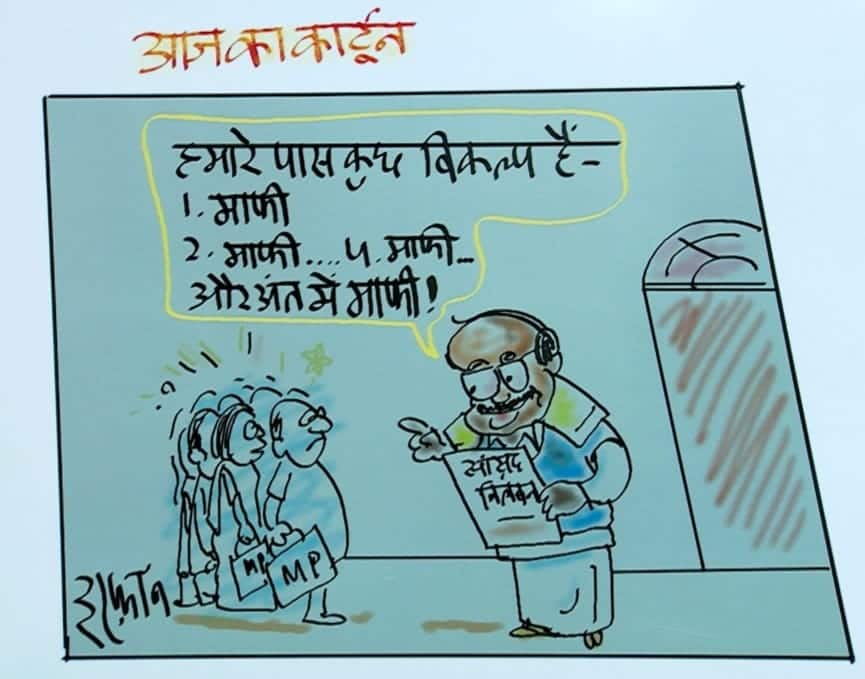 आज का कार्टून
हमारे पास कुछ विकल्प हैं-
1. माफी
2. माफी.... 5. माफी...
और अंत में माफी!
सांसद
निलंबन
MP
MP
इरफान